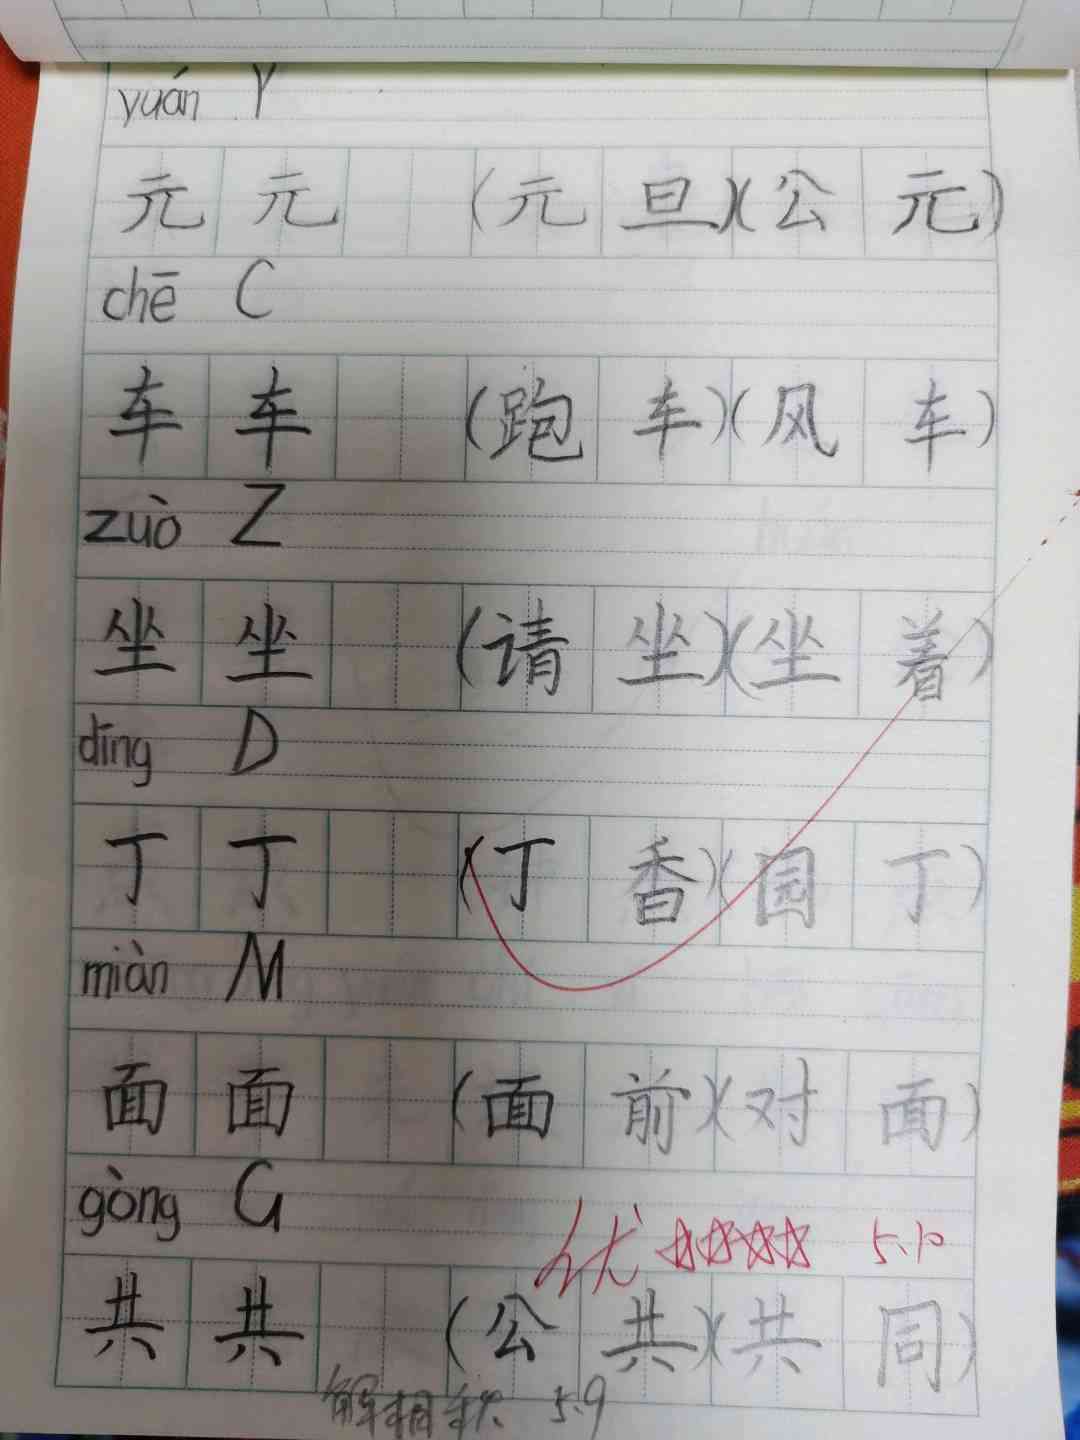 yuán Y
元 元 (元 旦)(公 元)
chē C
车 车 (跑 车)(风 车)
zuò Z
坐 坐 (请 坐)(坐 着)
dīng D
丁 丁 (丁 香)(园 丁)
miàn M
面 面 (面 前)(对 面)
gòng G
优 ☆☆☆☆ 5.10
共 共 (公 共)(共 同)
5.9